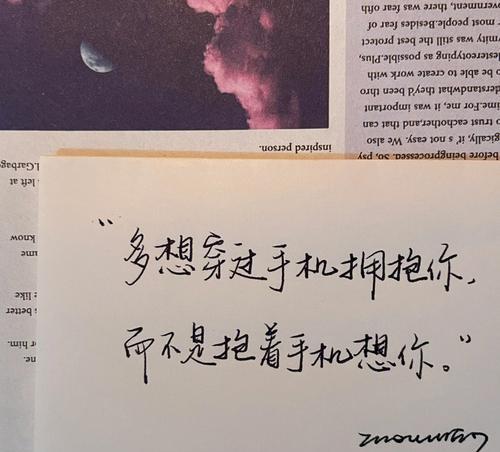 “多想穿过手机拥抱你，
而不是抱着手机想你。”
before beingprocessed. So, psy
gically, it's not easy. We also
o trust eachother,and that can
ime.For me, it was important
derstandwhat they'd been thro
o be able to create work with
destereotyping as possible.Plus,
rmity was still the best protect
r most people.Besides fear of
vernment, there was fear ofth
inspired person.
r him.
s better
e like
know
left at